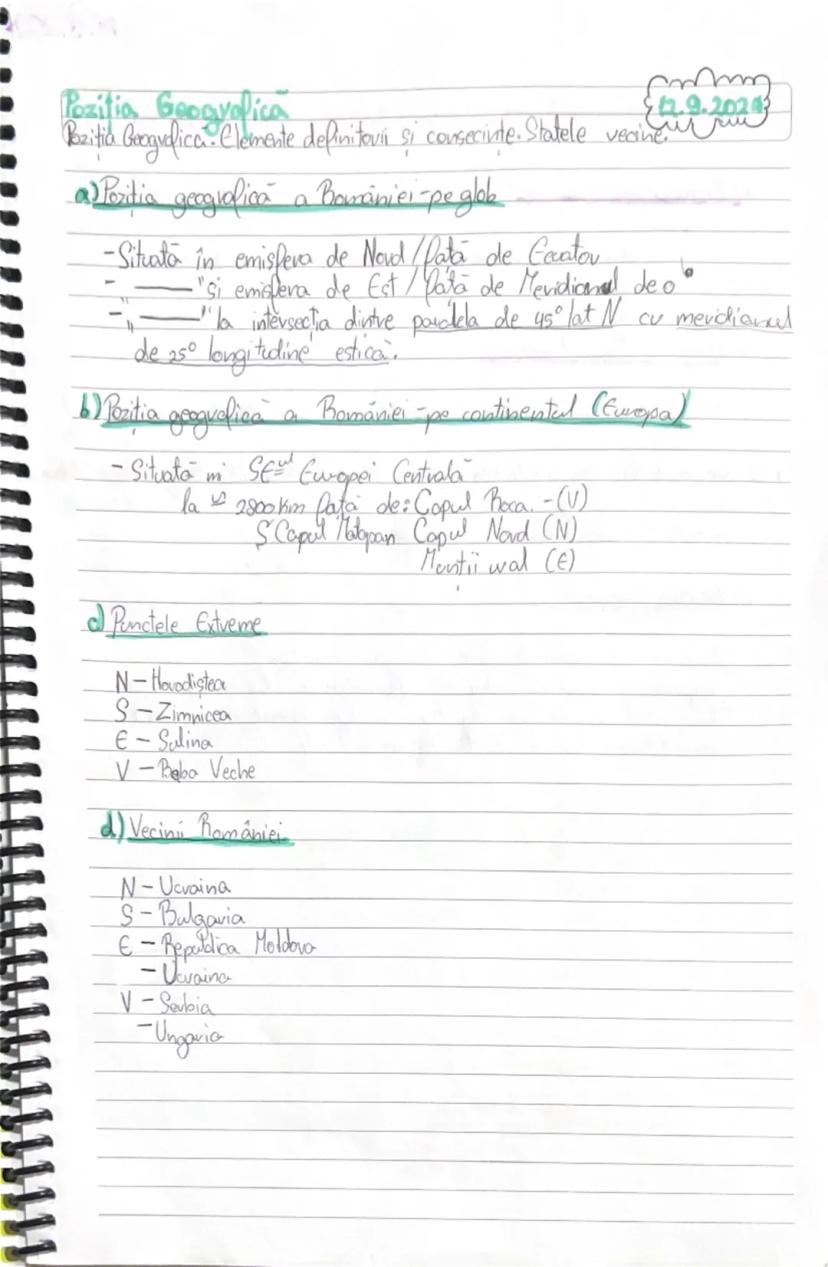 Poziția Geografică
12.9.2024
Poziția Geografică. Elemente definitorii și consecințe. Statele vecine.
a) Poziția geografică a României - pe glob
- Situată în emisfera de Nord / față de Ecuator
- ——— " și emisfera de Est / față de Meridianul de 0°
- „ ——— " la intersecția dintre paralela de 45° lat N cu meridianul
de 25° longitudine estică.
b) Poziția geografică a României - pe continentul (Europa)
- Situată în SE ul Europei Centrală
la ≈ 2800 km față de: Capul Roca. - (V)
S Capul Matapan Capul Nord (N)
Munții Ural (E)
c) Punctele Extreme
N - Horodiștea
S - Zimnicea
E - Sulina
V - Beba Veche
d) Vecinii României
N - Ucraina
S - Bulgaria
E - Republica Moldova
- Ucraina
V - Serbia
- Ungaria